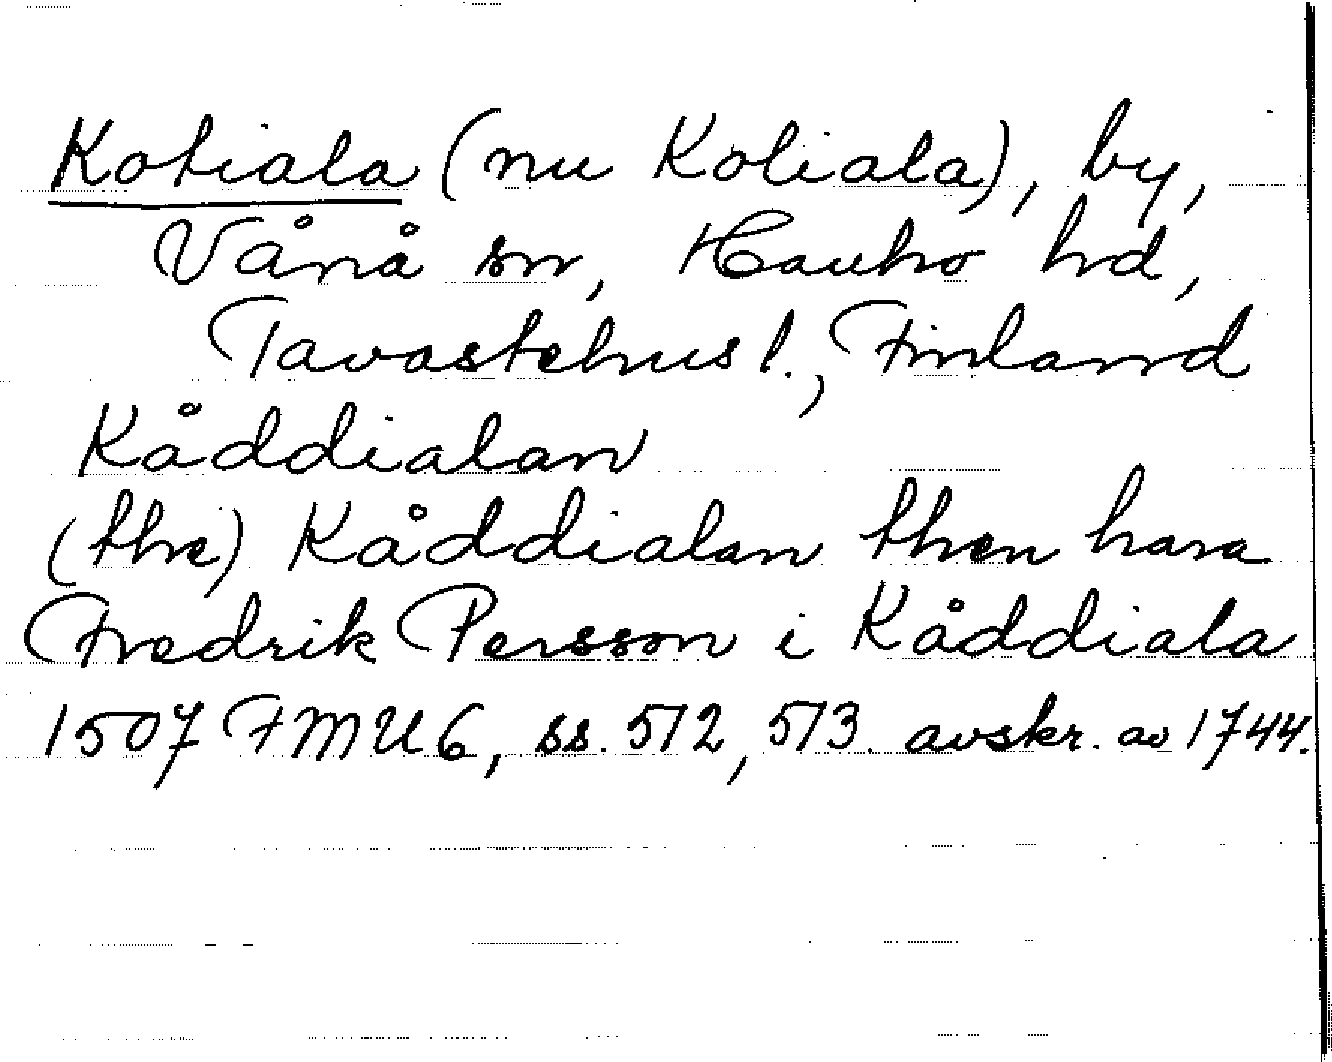 Kotiala (nu Koliala), by,
Vånå sn, Hauho hd,
Tavastehus l., Finland
Kåddialan
(the) Kåddialan then hara
Fredrik Persson i Kåddiala
1507 FMU 6, ss. 512, 513. avskr. av 1744.